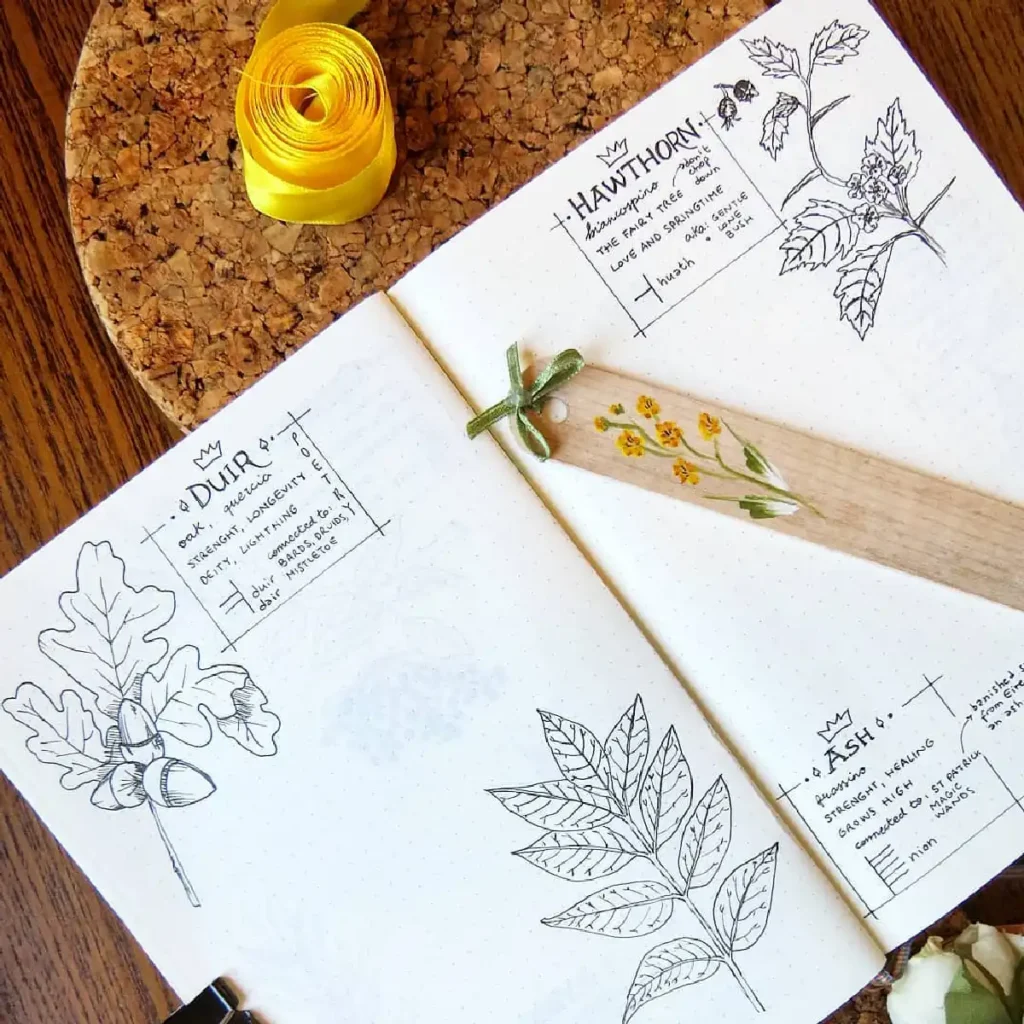 DUIR
oak, quercia
STRENGHT, LONGEVITY
DEITY, LIGHTNING
connected to:
BARDS, DRUIDS,
MISTLETOE
POETRY
duir
dair
HAWTHORN
biancospino
don't
chop
down
THE FAIRY TREE
LOVE AND SPRINGTIME
aka: GENTLE
LONE
BUSH
huath
ASH
frassino
STRENGHT, HEALING
GROWS HIGH
connected to: ST PATRICK
MAGIC
WANDS
nion
banished
from Eire
an ash